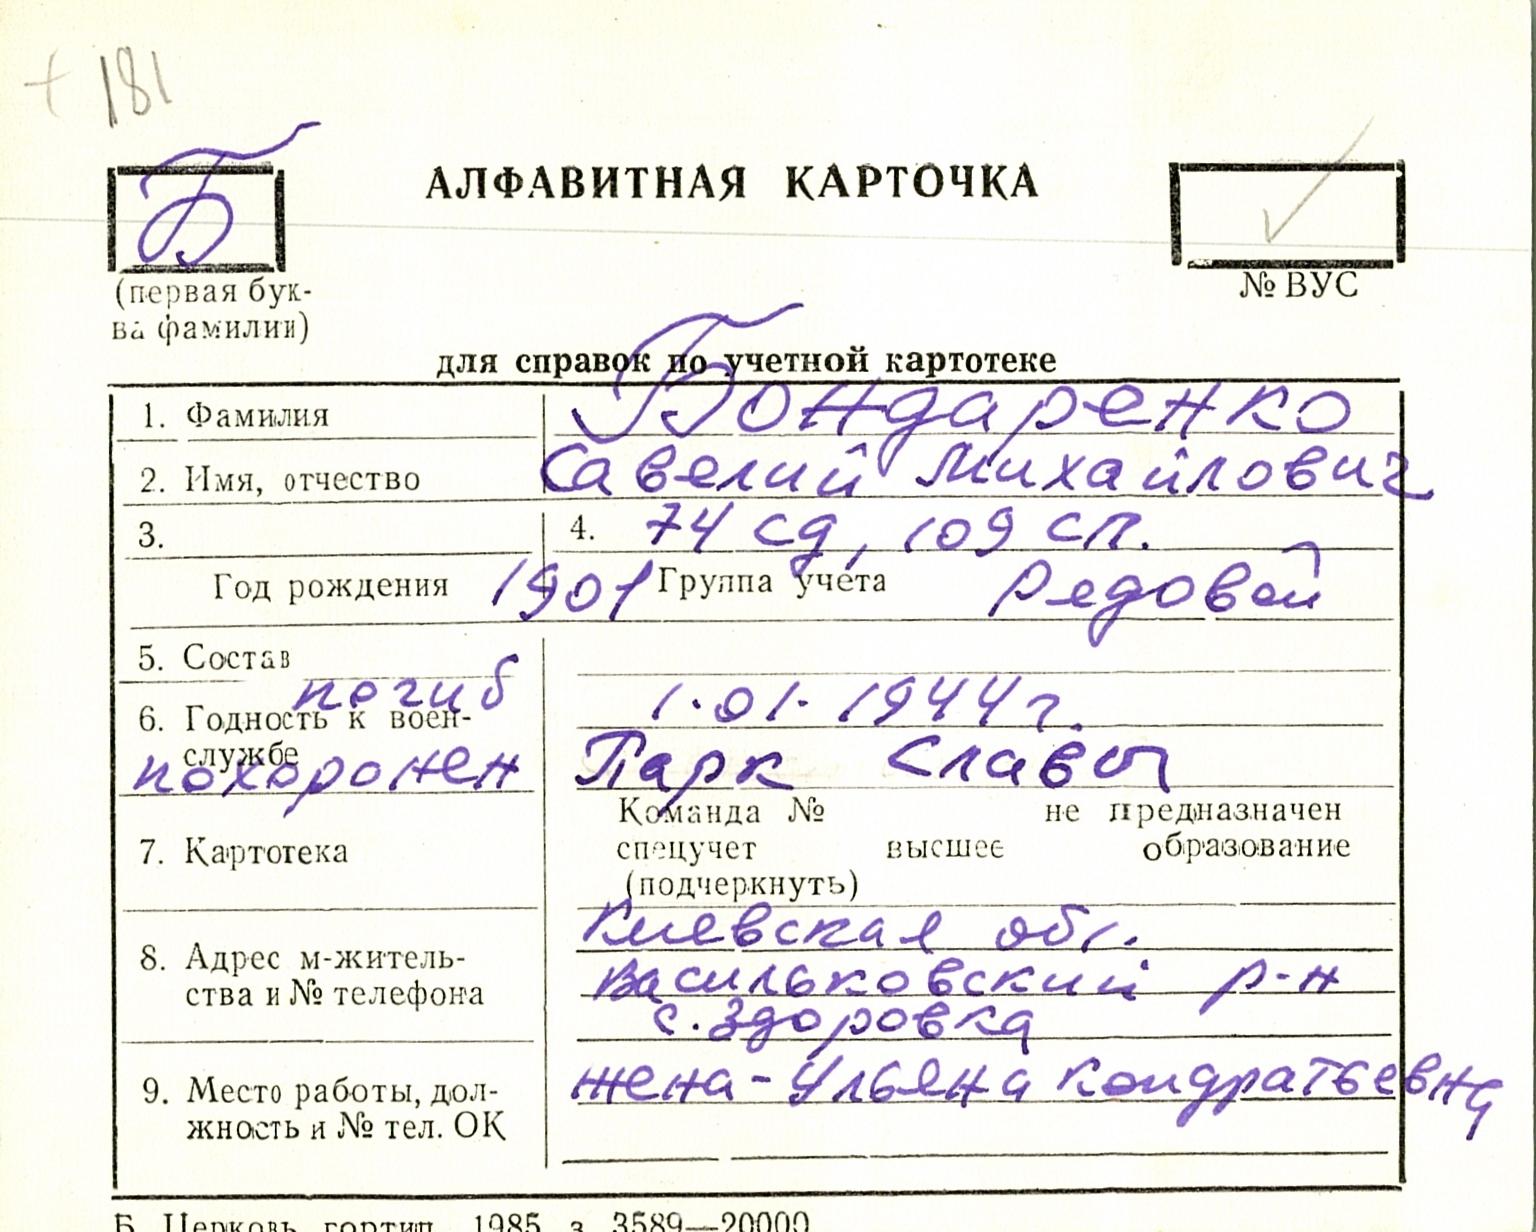 + 181
Б
АЛФАВИТНАЯ КАРТОЧКА
(первая бук-
ва фамилии)
№ ВУС
для справок по учетной картотеке
1. Фамилия Бондаренко
2. Имя, отчество Савелий Михайлович
3. 4. 74 сд, 109 сп.
Год рождения 1901 Группа учета Рядовой
5. Состав
погиб 1.01.1944 г.
6. Годность к воен-
службе
похоронен Парк Славы
Команда № не предназначен
7. Картотека спецучет высшее образование
(подчеркнуть)
Киевская обл.
8. Адрес м-житель- Васильковский р-н
ства и № телефона с. Здоровка
9. Место работы, дол- жена - Ульяна Кондратьевна
жность и № тел. ОК
Б. Церковь, гортип. 1985 з. 3589—20000